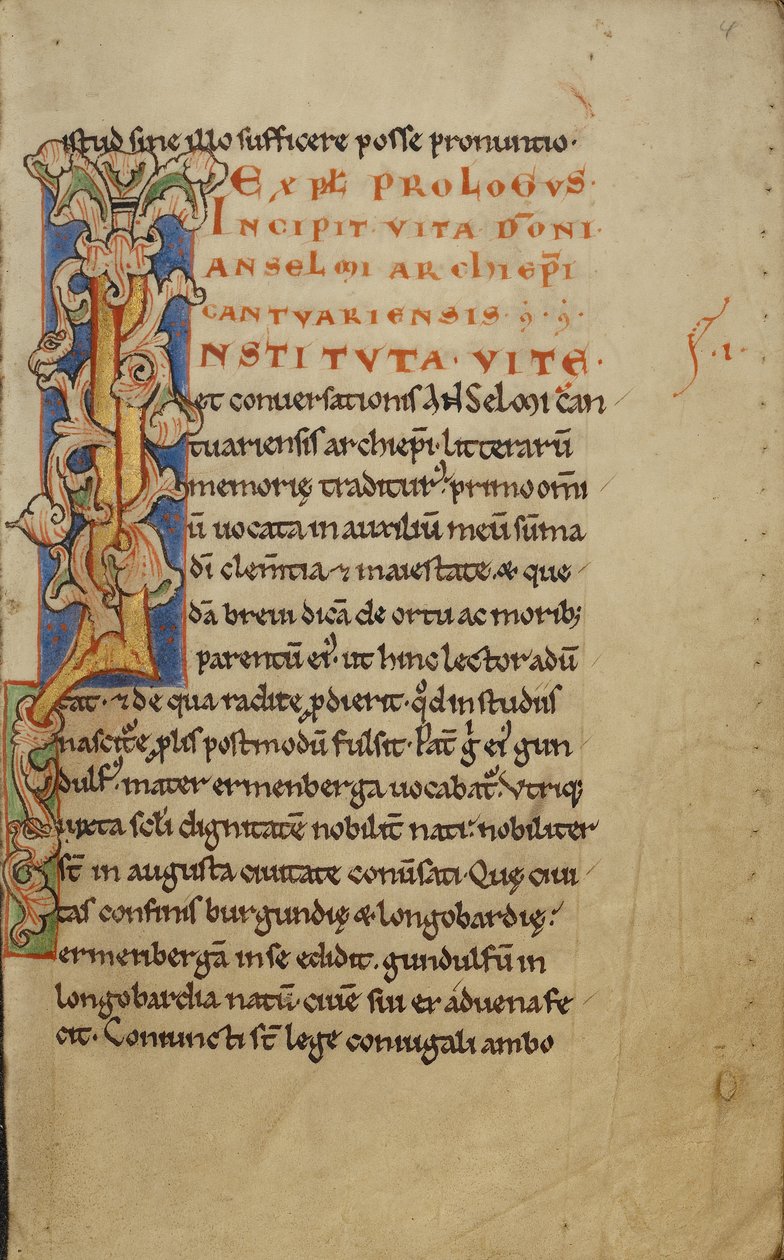 istud sine illo sufficere posse pronuntio·
Expl̄ PROLOGVS·
INCIPIT· VITA D̄ONI·
ANSELMI ARCHIEP̄I
CANTVARIENSIS·
INSTITVTA· VITE·
et conuersationis ANSelMI can
tuariensis archiep̄i· litterarū
memorię traditurꝰ· primo om̄i
ū uocata in auxiliū meū sūma
dī clem̄tia ⁊ maiestate. & que
dā breui dicā de ortu ac moribꝫ
parentū eiꝰ· ut hinc lector adū
tat· ⁊ de qua radice ꝓdierit· qd̓ in studiis
nascit᷑e ꝓlis postmodū fulsit· Pat̄ g̓ eiꝰ gun
dulfꝰ· mater ermenberga uocabat᷑· Vtriqꝫ
iuxta sc̄li dignitatē nobilit̄ nati· nobiliter
st̄ in augusta ciuitate conūsati· Quę ciui
tas confinis burgundię & longobardię·
ermenbergā in se edidit. gundulfū in
longobardia natū· ciuē sui ex aduena fe
cit· Coniuncti st̄ lege coniugali ambo
·1·
4